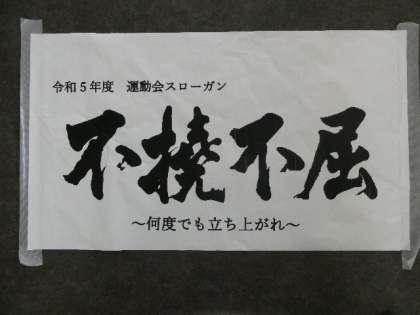 令和5年度　運動会スローガン
不撓不屈
～何度でも立ち上がれ～